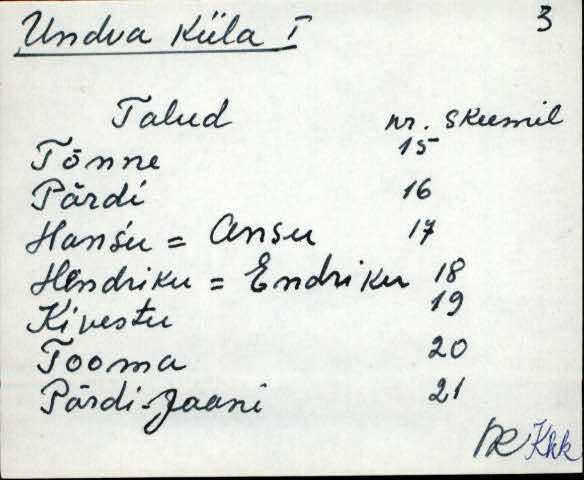 Undva Küla I 3
Talud nr. skeemil
Tõnne 15
Pärdi 16
Hansu = Ansu 17
Hendriku = Endriku 18
Kivestu 19
Tooma 20
Pärdi-Jaani 21
Khk